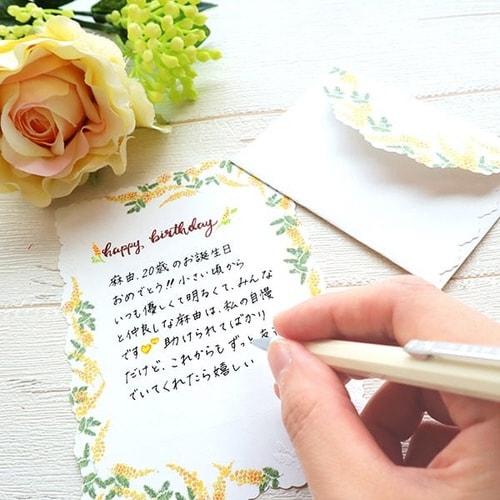 happy birthday
麻由、20歳のお誕生日
おめでとう!!小さい頃から
いつも優しくて明るくて、みんな
と仲良しな麻由は、私の自慢
です💛💛助けられてばかり
だけど、これからもずっと
でいてくれたら嬉しい